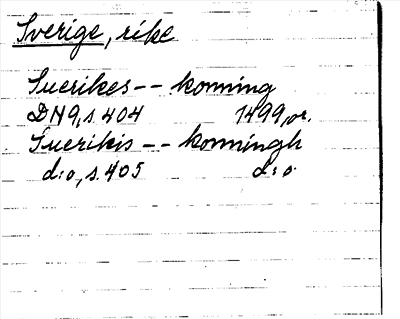 Sverige, rike
Suerikes -- konning
DN9, s. 404 1499, or.
Suerikis -- konningh
d:o, s. 405 d:o